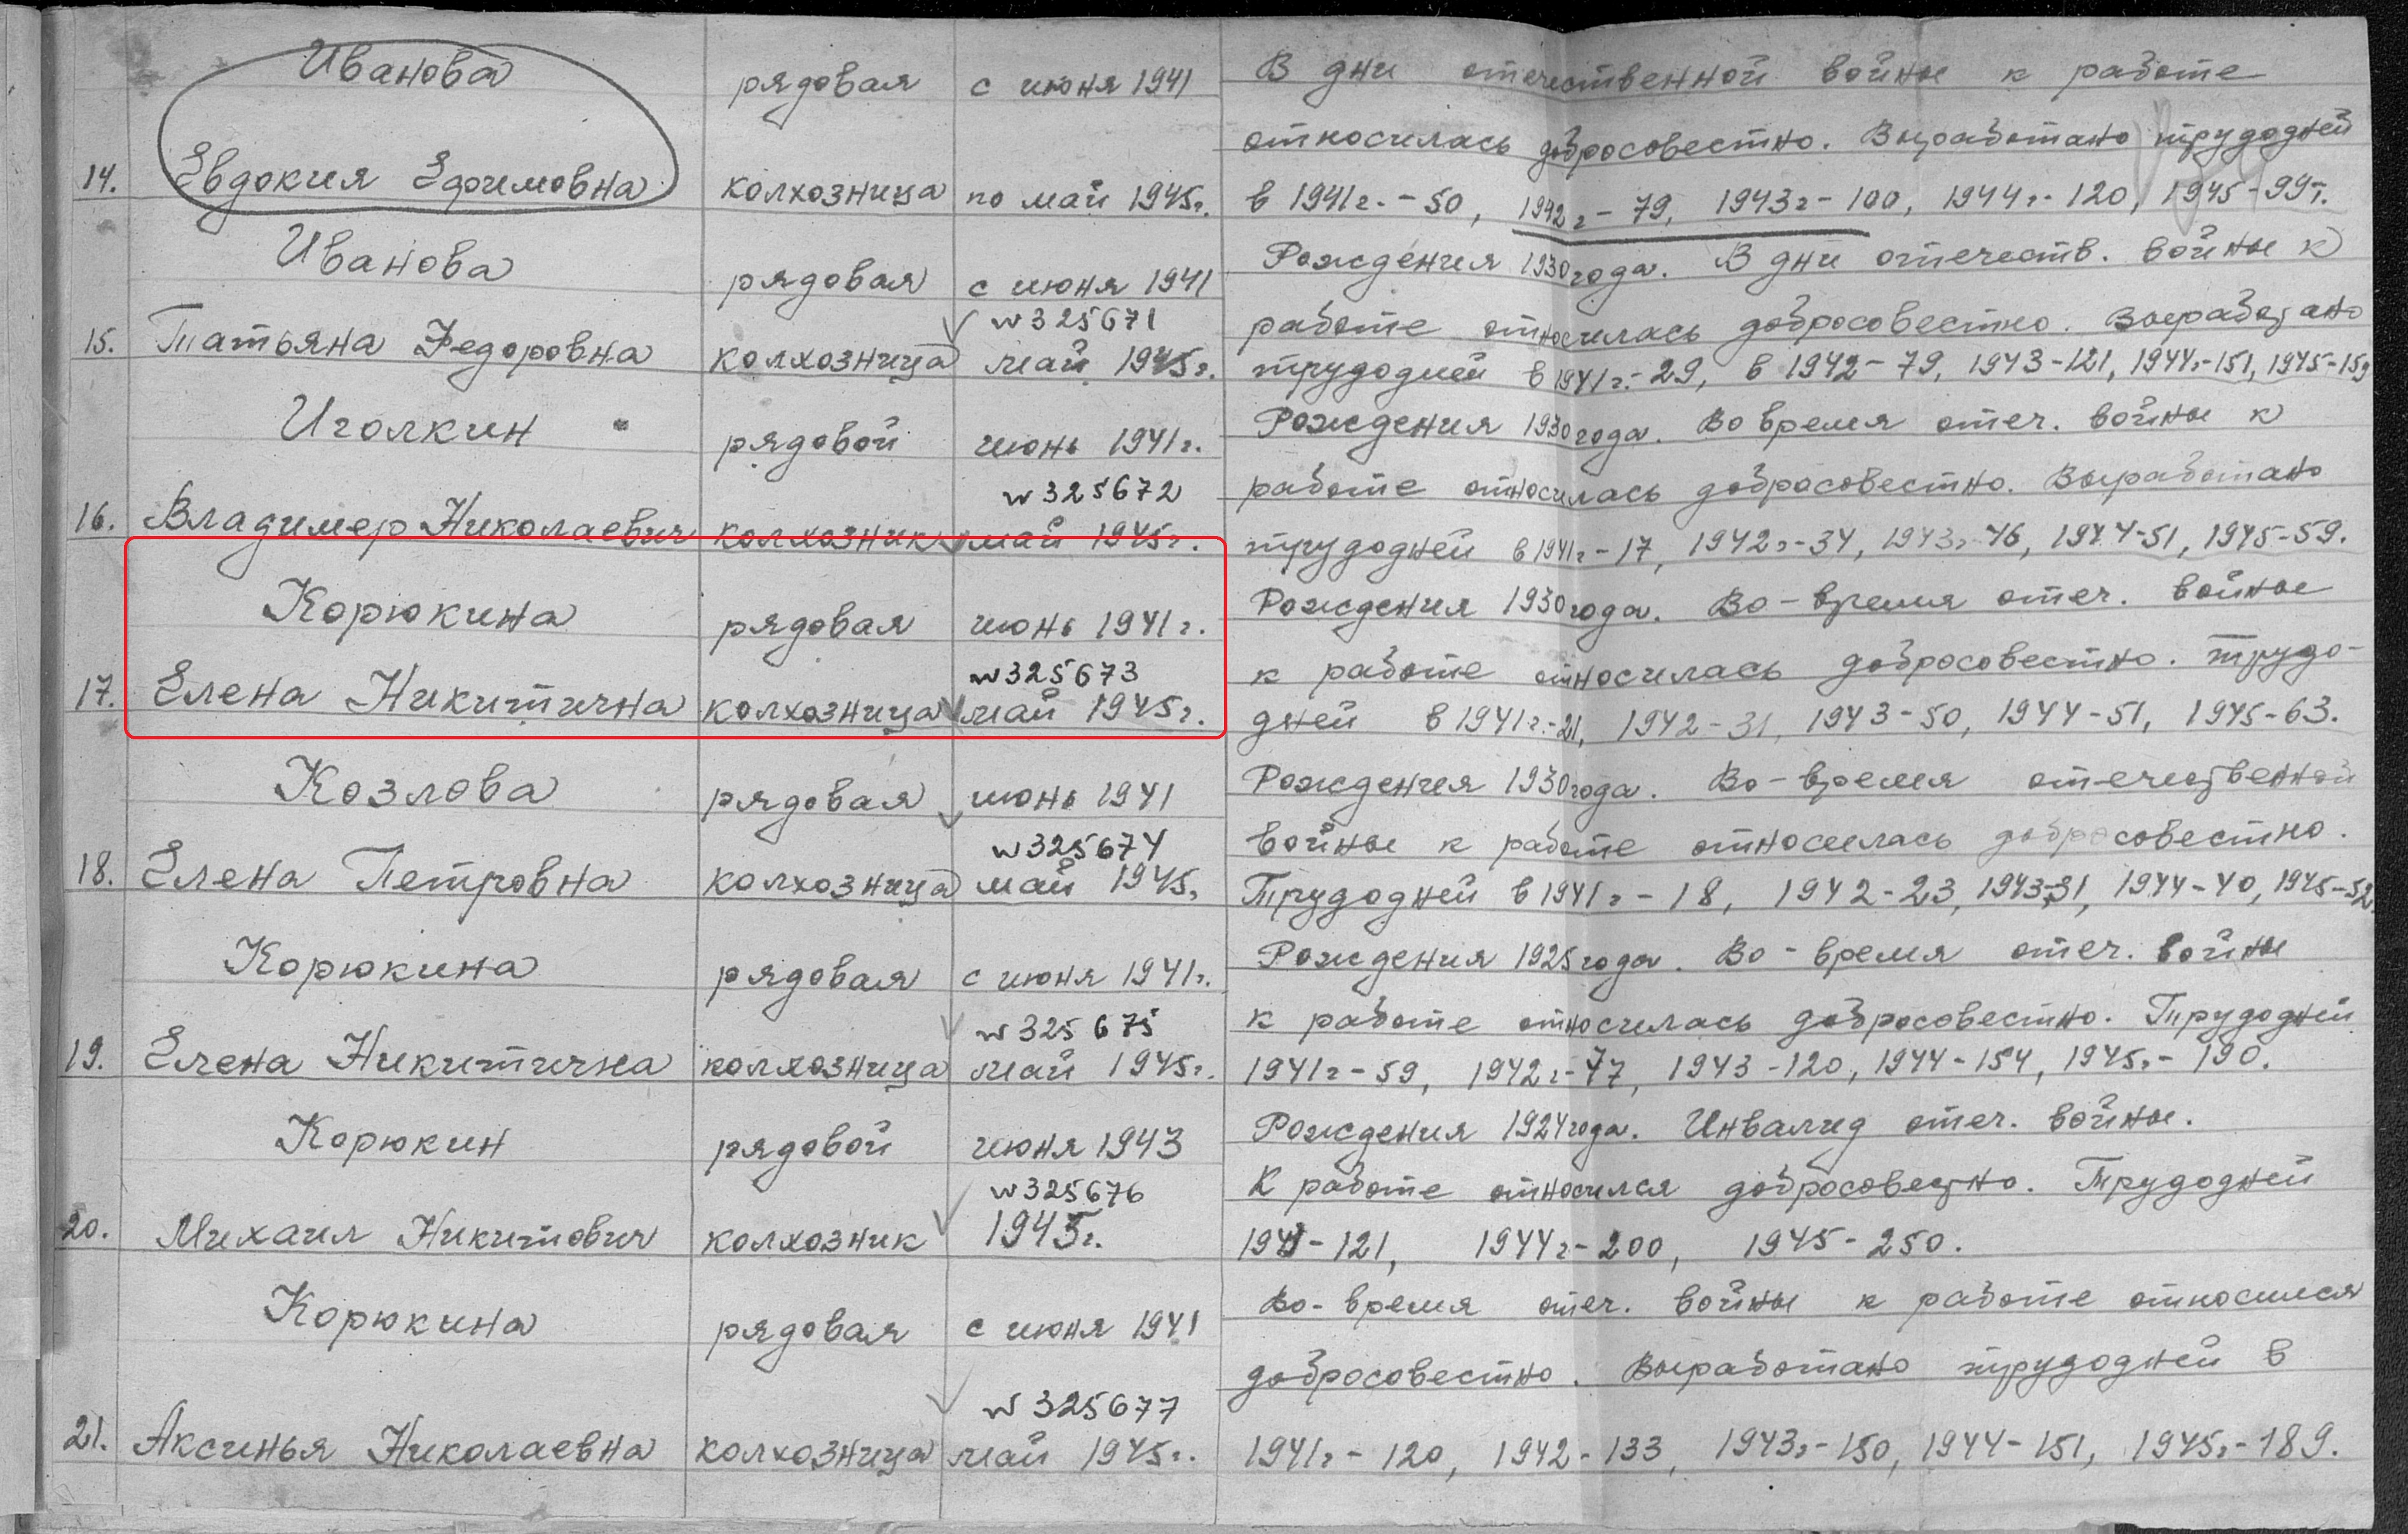 Иванова рядовая с июня 1941 В дни отечественной войны к работе
относилась добросовестно. Выработано трудодней
14. Евдокия Ефимовна колхозница по май 1945г. в 1941г. - 50, 1942г - 79, 1943г - 100, 1944г. - 120, 1945 - 99т.
Иванова рядовая с июня 1941 Рождения 1930 года. В дни отечеств. войны к
№325671 работе относилась добросовестно. Выработано
15. Татьяна Федоровна колхозница май 1945г. трудодней в 1941г. - 29, в 1942 - 79, 1943 - 121, 1944г. - 151, 1945 - 159
Иголкин рядовой июнь 1941г. Рождения 1930 года. Во время отеч. войны к
№325672 работе относилась добросовестно. Выработано
16. Владимер Николаевич колхозник май 1945г. трудодней в 1941г - 17, 1942г - 34, 1943г - 46, 1944 - 51, 1945 - 59.
Корюкина рядовая июнь 1941г. Рождения 1930 года. Во-время отеч. войны
№325673 к работе относилась добросовестно. Трудо-
17. Елена Никитична колхозница май 1945г. дней в 1941г. - 21, 1942 - 31, 1943 - 50, 1944 - 51, 1945 - 63.
Козлова рядовая июнь 1941 Рождения 1930 года. Во-время отечественной
№325674 войны к работе относилась добросовестно.
18. Елена Петровна колхозница май 1945г. Трудодней в 1941г - 18, 1942 - 23, 1943-31, 1944 - 40, 1945 - 52.
Корюкина рядовая с июня 1941г. Рождения 1925 года. Во-время отеч. войны
№325675 к работе относилась добросовестно. Трудодней
19. Елена Никитична колхозница май 1945г. 1941г - 59, 1942г - 77, 1943 - 120, 1944 - 154, 1945г. - 190.
Корюкин рядовой июня 1943 Рождения 1924 года. Инвалид отеч. войны.
№325676 К работе относился добросовестно. Трудодней
20. Михаил Никитович колхозник 1945г. 1943 - 121, 1944г - 200, 1945 - 250.
Корюкина рядовая с июня 1941 Во-время отеч. войны к работе относился
№325677 добросовестно. Выработано трудодней в
21. Аксинья Николаевна колхозница май 1945г. 1941г - 120, 1942 - 133, 1943г - 150, 1944 - 151, 1945г. - 189.